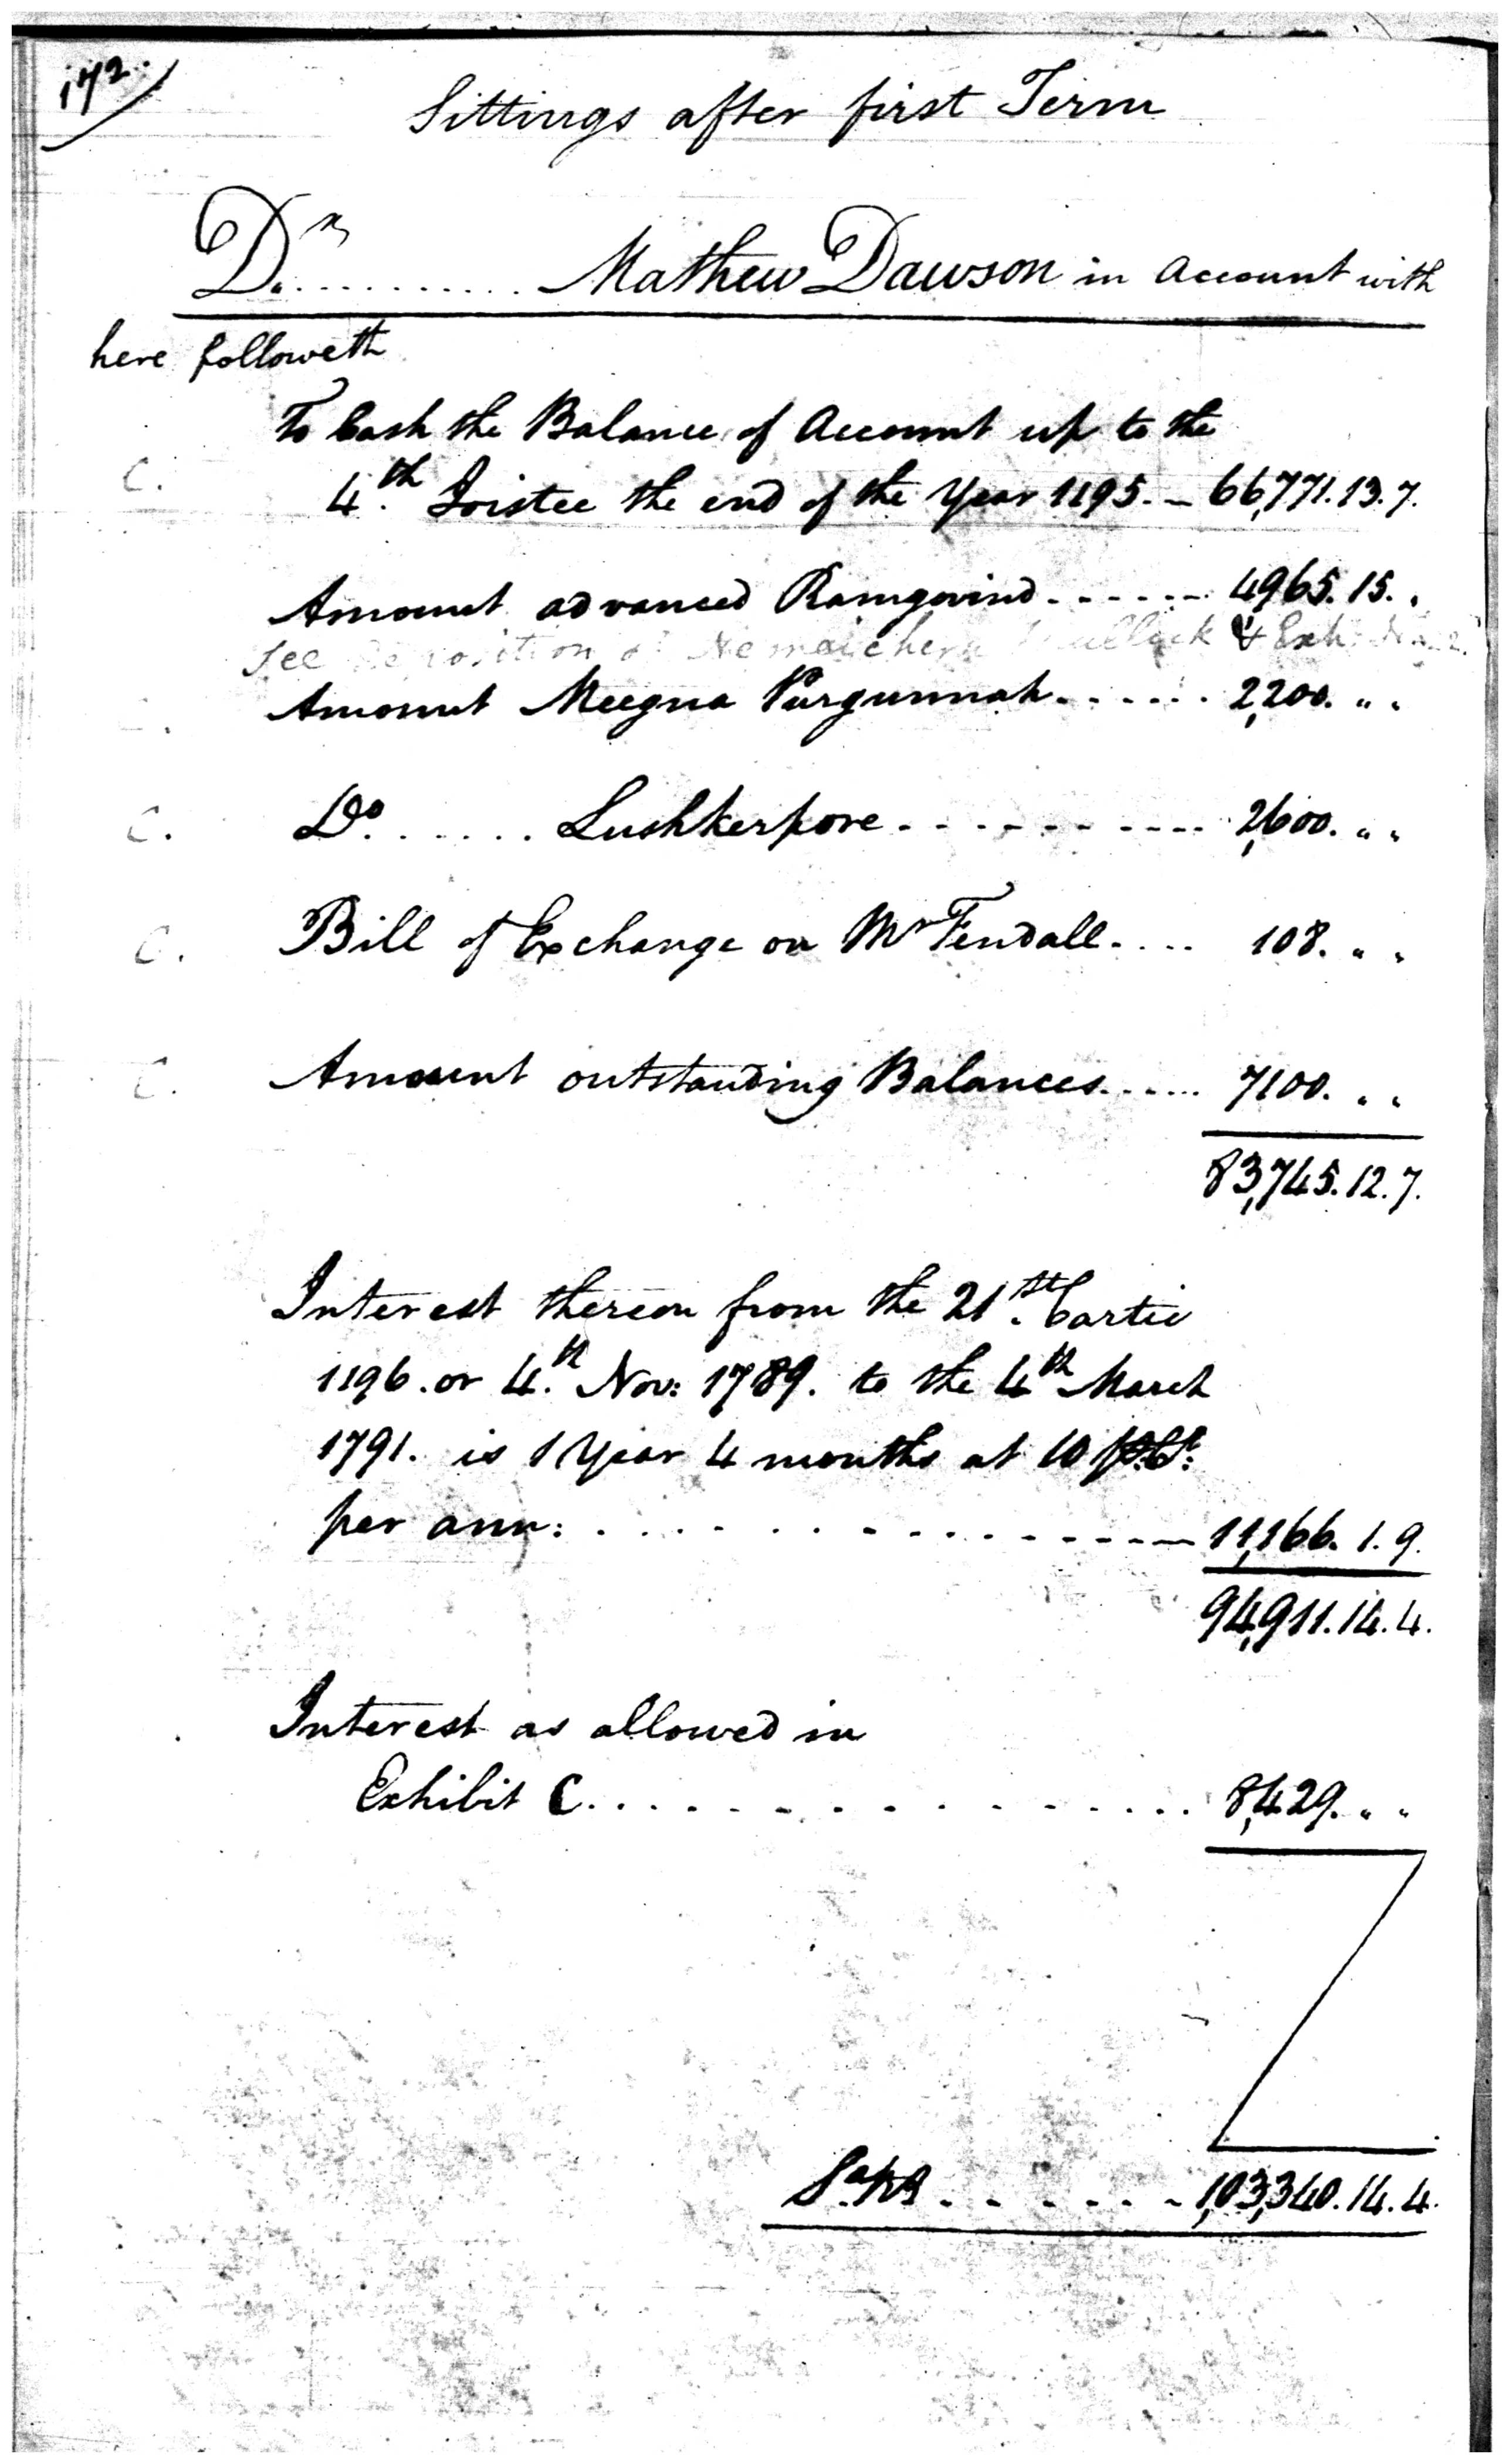 172.
Sittings after first Term
Dr. .......... Mathew Dawson in Account with
here followeth
To Cash the Balance of Account up to the
C. 4th. Joistee the end of the Year 1195. – 66,771.13.7.
Amount advanced Ramgovind ...... 4965.15. .
See Deposition of Nemaichern Mullick & Exh:
Amount Meegna Purgunnah ...... 2,200. " "
C. Do. ...... Lushkerpore ......... 2,600. " "
C. Bill of Exchange on Mr Fendall .... 108. " "
C. Amount outstanding Balances ..... 7100. " "
83,745.12.7.
Interest thereon from the 21st. Cartic
1196. or 4.th Nov: 1789. to the 4th March
1791. is 1 Year 4 months at 10 P.Ct:
per ann: ................ 11,166. 1. 9.
94,911.14.4.
Interest as allowed in
Exhibit C. ................ 8,429. " "
Sa. Rs ...... 1,03,340.14.4.